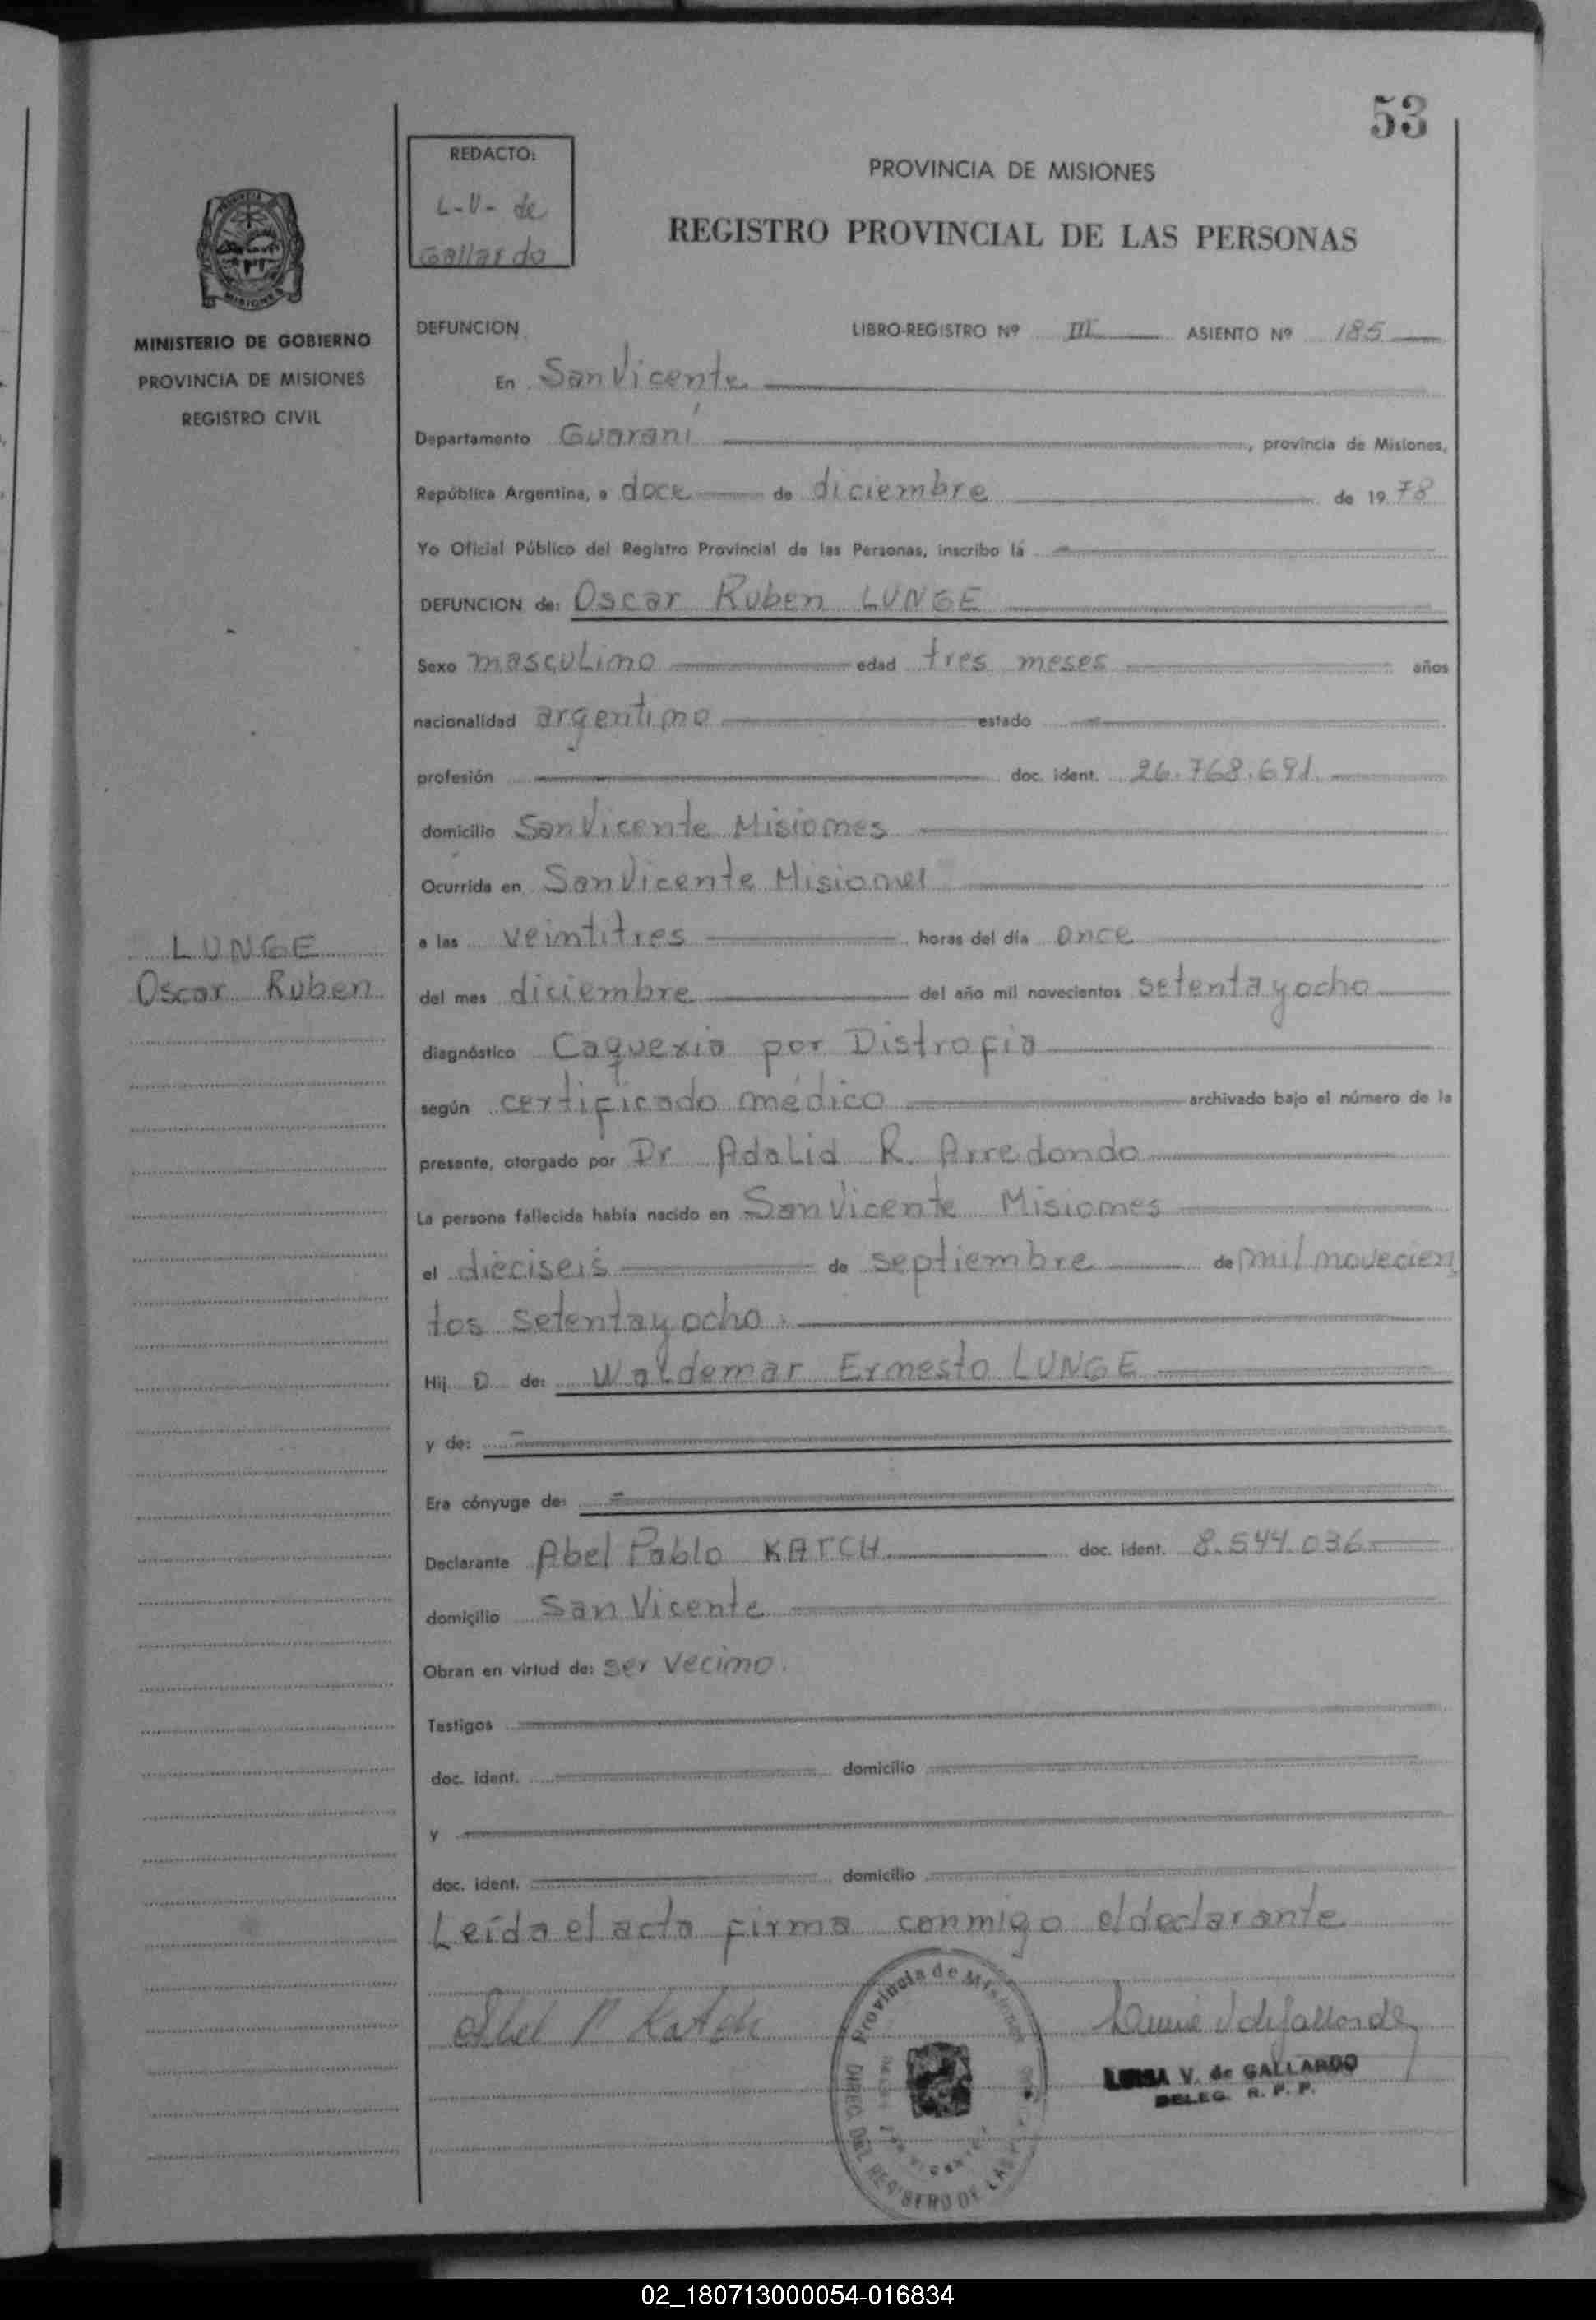 53
REDACTO:
L-V- de
Gallardo
PROVINCIA DE MISIONES
REGISTRO PROVINCIAL DE LAS PERSONAS
MINISTERIO DE GOBIERNO
PROVINCIA DE MISIONES
REGISTRO CIVIL
DEFUNCION LIBRO-REGISTRO Nº III ASIENTO Nº 185
En San Vicente
Departamento Guaraní, provincia de Misiones,
República Argentina, a doce de diciembre de 1978
Yo Oficial Público del Registro Provincial de las Personas, inscribo la
DEFUNCION de: Oscar Ruben LUNGE
Sexo masculino edad tres meses años
nacionalidad argentino estado
profesión doc. ident. 26.768.691
domicilio San Vicente Misiones
Ocurrida en San Vicente Misiones
LUNGE
Oscar Ruben
a las veintitres horas del día once
del mes diciembre del año mil novecientos setenta y ocho
diagnóstico Caquexia por Distrofia
según certificado médico archivado bajo el número de la
presente, otorgado por Dr Adalid R. Arredondo
La persona fallecida había nacido en San Vicente Misiones
el dieciseis de septiembre de mil novecien
tos setenta y ocho.
Hij o de: Waldemar Ernesto LUNGE
y de:
Era cónyuge de:
Declarante Abel Pablo KATCH doc. ident. 8.544.036
domicilio San Vicente
Obran en virtud de: ser vecino.
Testigos
doc. ident. domicilio
y
doc. ident. domicilio
Leída el acta firma conmigo el declarante
Abel P Katch
Provincia de Misiones
DIREC. DEL REGISTRO DE LAS
LUISA V. de GALLARDO
DELEG. R. P. P.
02_180713000054-016834